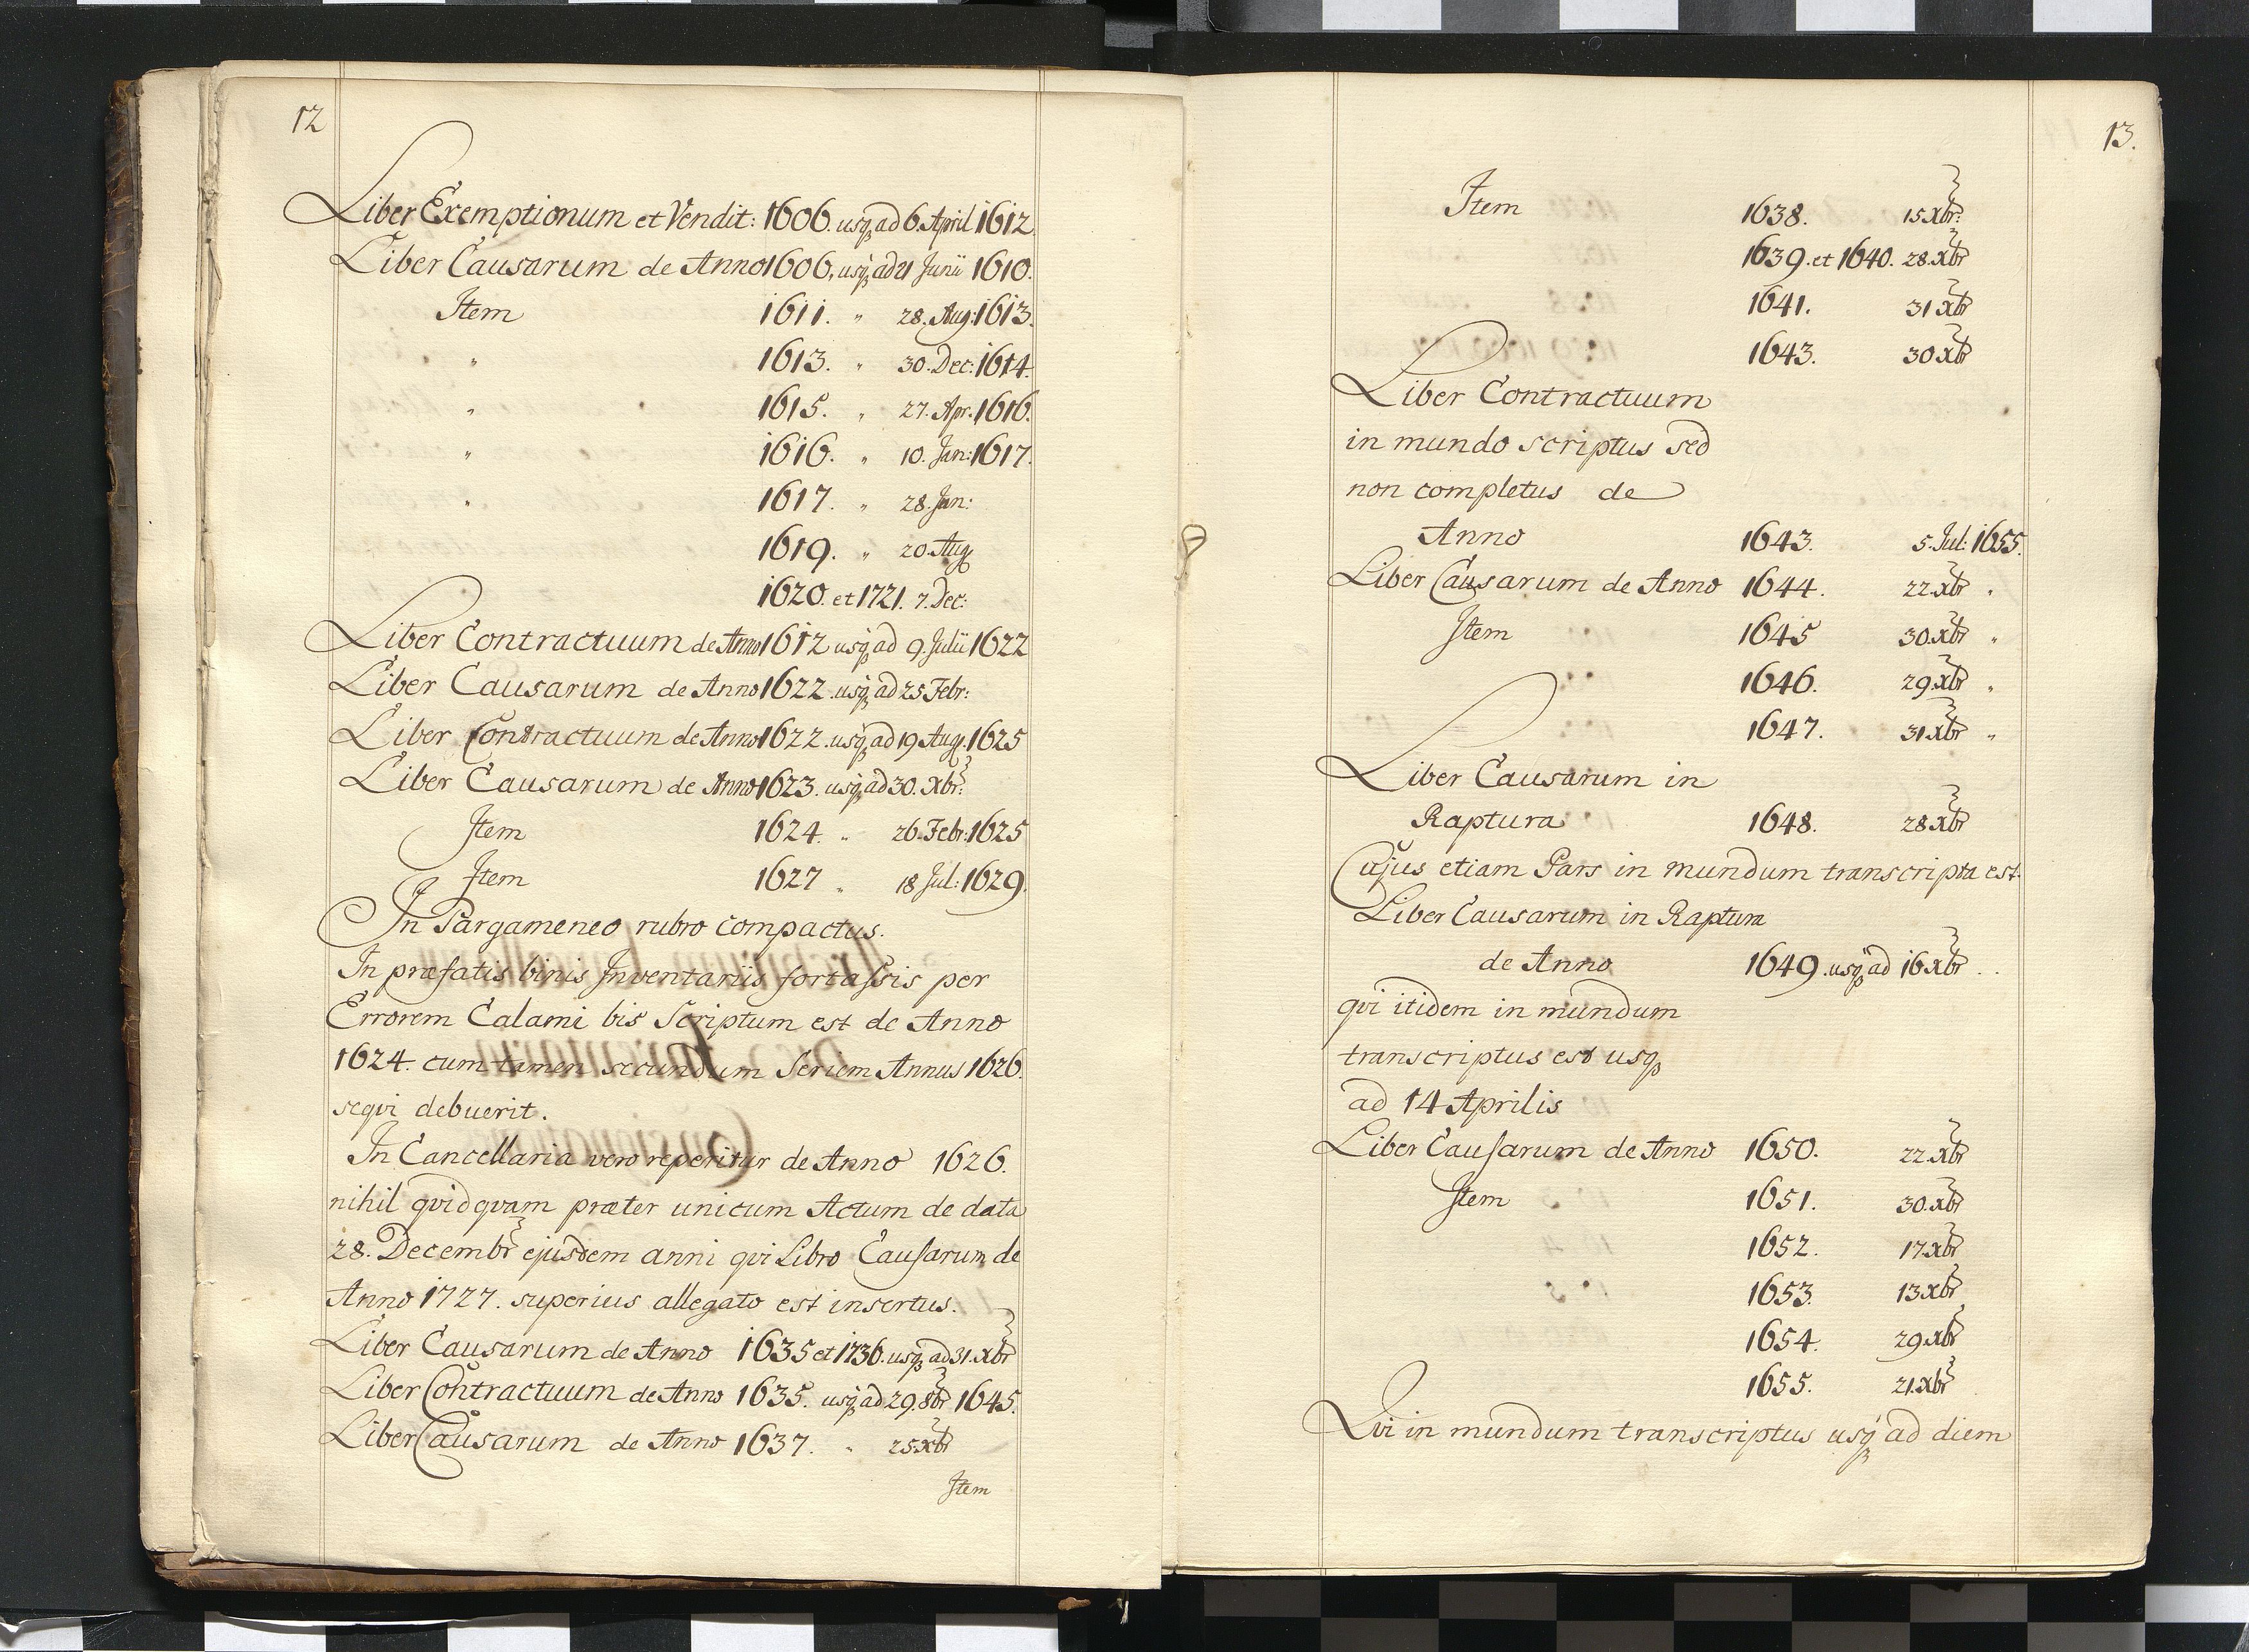 12
Liber Exemptionum et Vendit: 1606. usq ad 6. April 1612.
Liber Causarum de Anno 1606, usq ad 21 Junii 1610.
Item 1611. " 28. Aug: 1613.
" 1613. " 30. Dec: 1614.
" 1615. " 27. Apr. 1616.
" 1616. " 10. Jan: 1617.
" 1617. " 28. Jan:
1619. " 20. Aug
1620. et 1721. 7. Dec:
Liber Contractuum de Anno 1612 usq ad 9. Julii 1622
Liber Causarum de Anno 1622. usq ad 25 Febr:
Liber Contractuum de Anno 1622. usq ad 19 Aug. 1625
Liber Causarum de Anno 1623. usq ad 30. Xbr:
Item 1624. " 26. Febr: 1625
Item 1627 " 18 Jul: 1629.
In Pargameneo rubro compactus.
In præfatis binis Inventariis fortassis per
Errorem Calami bis Scriptum est de Anno
1624. cum tamen secundum Seriem Annus 1626.
seqvi debuerit.
In Cancellaria vero reperitur de Anno 1626.
nihil qvidqvam præter unicum Actum de data
28. Decembr ejusdem anni qvi Libro Causarum de
Anno 1727. superius allegato est insertus.
Liber Causarum de Anno 1635 et 1736. usq ad 31. Xbr
Liber Contractuum de Anno 1635. usq ad 29. 8br 1645.
Liber Causarum de Anno 1637. " 25 Xbr
Item
13.
Item 1638. 15 Xbr:
1639. et 1640. 28. Xbr
1641. 31 Xbr
1643. 30 Xbr
Liber Contractuum
in mundo scriptus sed
non completus de
Anno 1643. 5. Jul: 1655.
Liber Causarum de Anno 1644. 22. Xbr "
Item 1645 30. Xbr "
1646. 29. Xbr "
1647. 31 Xbr "
Liber Causarum in
Raptura 1648. 28 Xbr
Cujus etiam Pars in mundum transcripta est.
Liber Causarum in Raptura
de Anno 1649. usq ad 16 Xbr . .
qvi itidem in mundum
transcriptus est usq
ad 14 Aprilis
Liber Causarum de Anno 1650. 22. Xbr
Item 1651. 30. Xbr
1652. 17 Xbr
1653. 13 Xbr
1654. 29. Xbr
1655. 21. Xbr
Qvi in mundum transcriptus usq ad diem